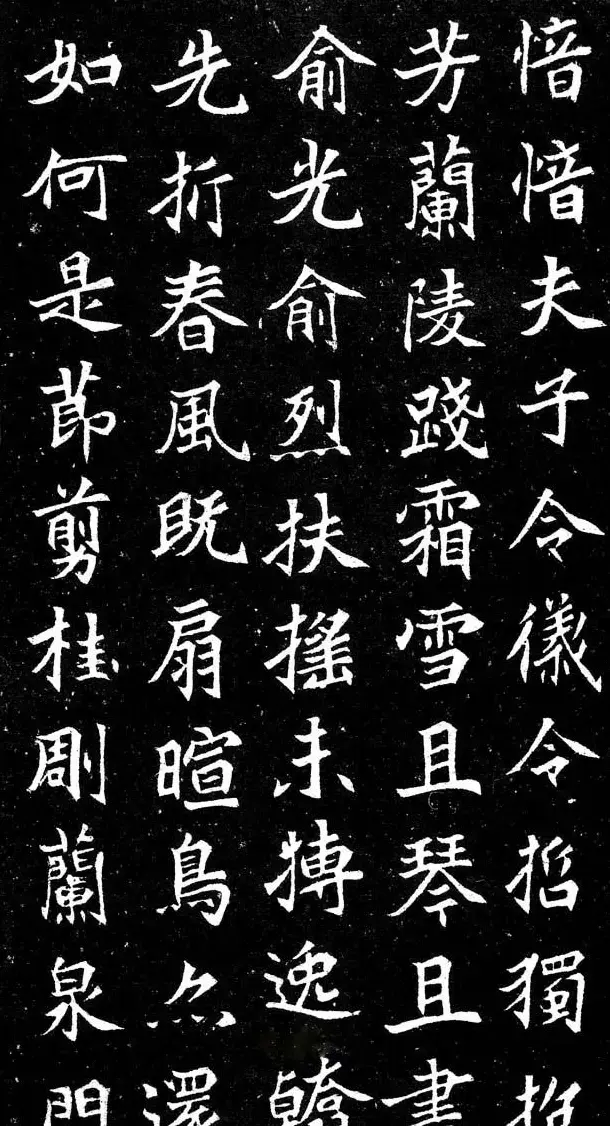 愔愔夫子令儀令哲獨
芳蘭陵踐霜雪且琴且書
俞光俞烈扶搖未搏逸
先折春風既扇暄鳥亦還
如何是莭剪桂蘭泉門